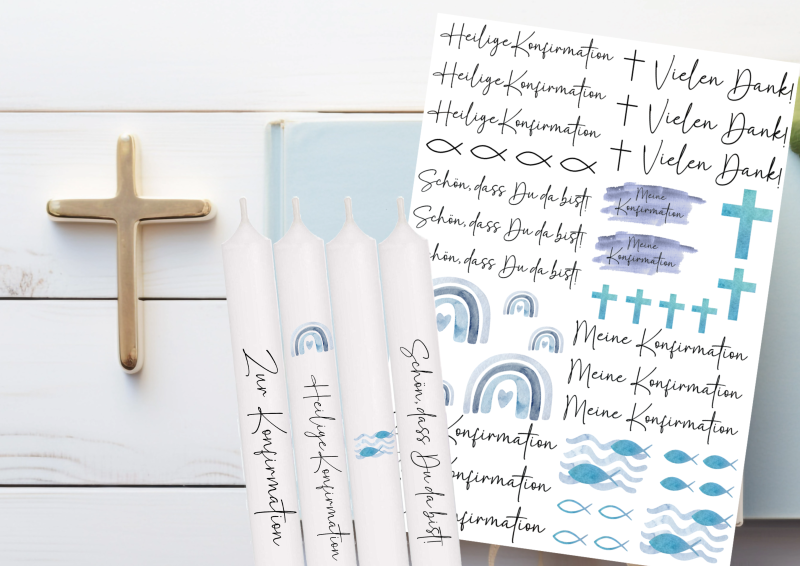 Heilige Konfirmation
Heilige Konfirmation
Heilige Konfirmation
Vielen Dank!
Vielen Dank!
Vielen Dank!
Schön, dass Du da bist!
Schön, dass Du da bist!
chön, dass Du da bist!
Meine
Konfirmation
Meine
Konfirmation
Meine Konfirmation
Meine Konfirmation
Meine Konfirmation
Konfirmation
Konfirmation
nfirmation
Zur Konfirmation
Heilige Konfirmation
Schön, dass Du da bist!